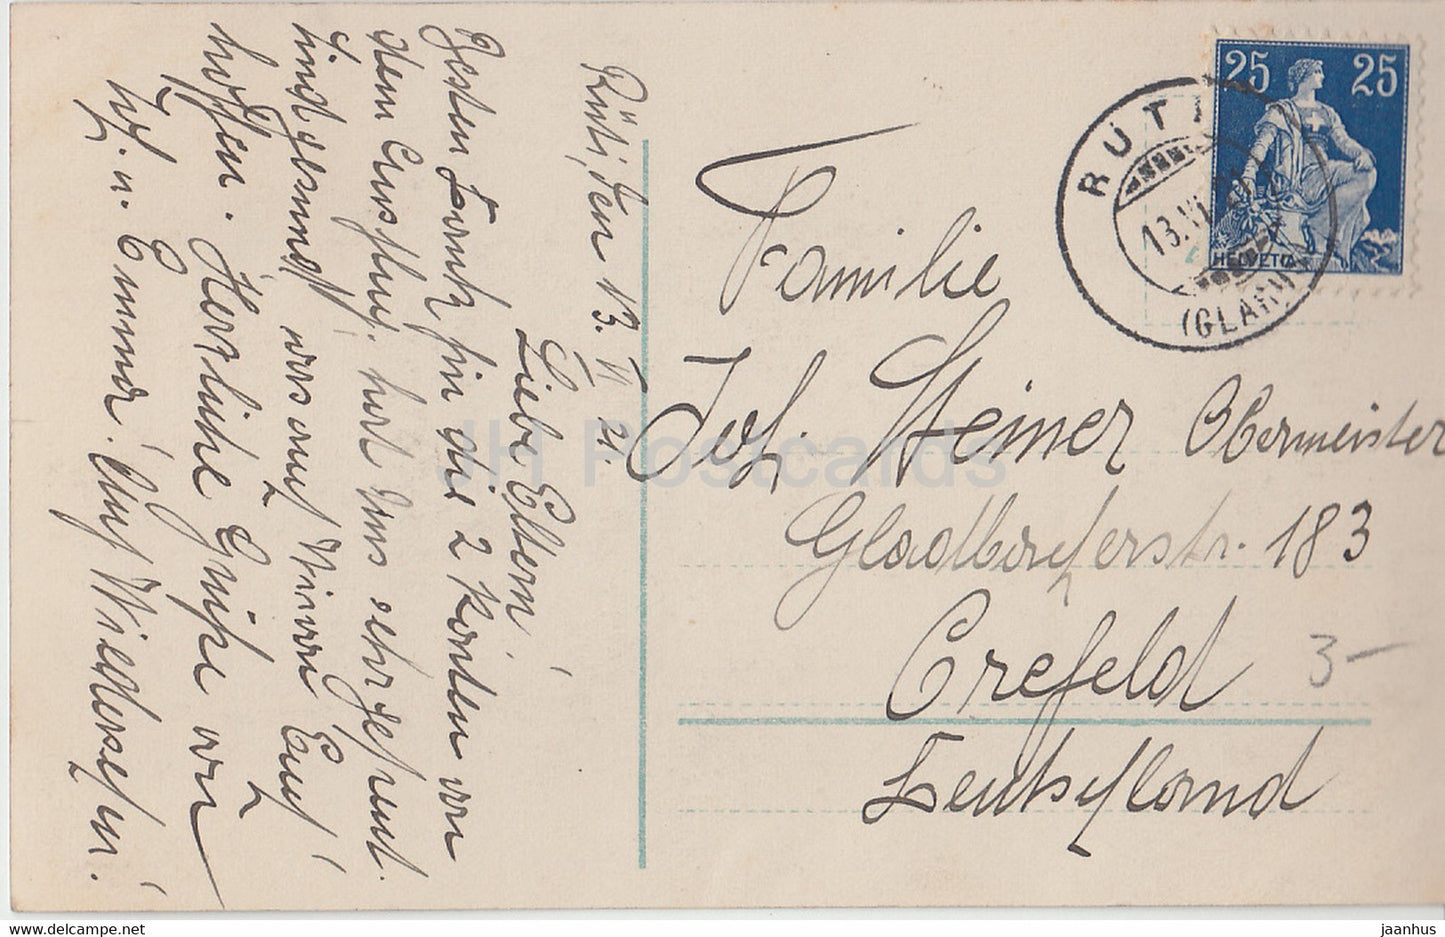 Rüti, den 13. VI 21.
Liebe Eltern!
Besten Dank für die 2 Karten von
dem Ausflug, hat uns sehr gefreut.
Sind gesund, was auch von Euch
hoffen. Herzliche Grüße von
u. Emma. Auf Wiedersehn!
Familie
Jos. Steiner Obermeister
Gladbacherstr. 183
Crefeld
Deutschland
3-
25 25
HELVETIA
RÜTI
13.VI.21
(GLARUS)
JH Postcards
jaanhus